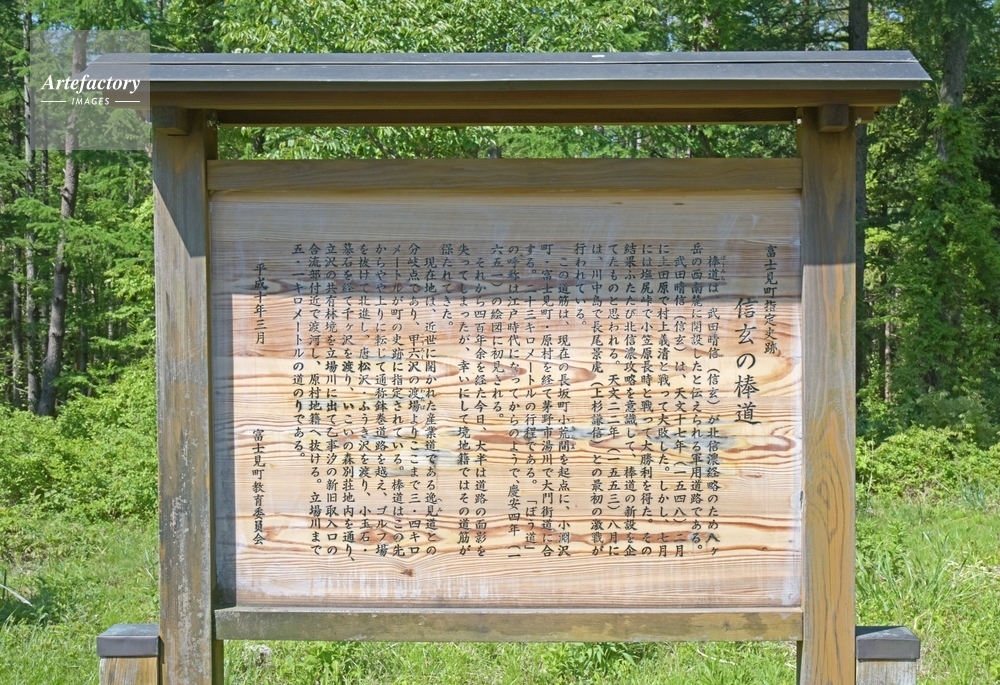 Artefactory
IMAGES
富士見町指定史跡
信玄の棒道
棒道は、武田晴信（信玄）が北信濃経略のため八ヶ
岳の西南麓に開設したと伝えられる軍用道路である。
武田晴信（信玄）は、天文十七年（一五四八）二月
に上田原で村上義清と戦って大敗した。しかし、七月
には塩尻峠で小笠原長時と戦って大勝利を得た。その
結果ふたたび北信濃攻略を意識して、棒道の新設を企
てたものと思われる。天文二二年（一五五三）八月に
は、川中島で長尾景虎（上杉謙信）との最初の激戦が
行われている。
この道筋は、現在の長坂町上荒間を起点に、小淵沢
町・富士見町・原村を経て茅野市湯川で大門街道に合
する。二十三キロメートルの行程である。「ぼう道」
の呼称は江戸時代になってからのようで、慶安四年（一
六五一）の絵図に初見される。
それから四百年余を経た今日、大半は道路の面影を
失ってしまったが、幸いにして境地籍ではその道筋が
保たれてきた。
現在地は、近世に開かれた産業道である逸見道との
分岐点であり、甲六沢の渡場よりここまで三・四キロ
メートルが町の史跡に指定されている。棒道はこの先
からやや上りに転じて通称鉢巻道路を越え、ゴルフ場
を抜けて北進し、唐松沢・ふうき沢を渡り、小玉石・
墓石を経て千ヶ沢を渡り、いこいの森別荘地内を通り、
立沢の共有林境を立場川に出て乙事汐の新旧取入口の
合流部付近で渡河し、原村地籍へ抜ける。立場川まで
五・一キロメートルの道のりである。
平成十年三月
富士見町教育委員会